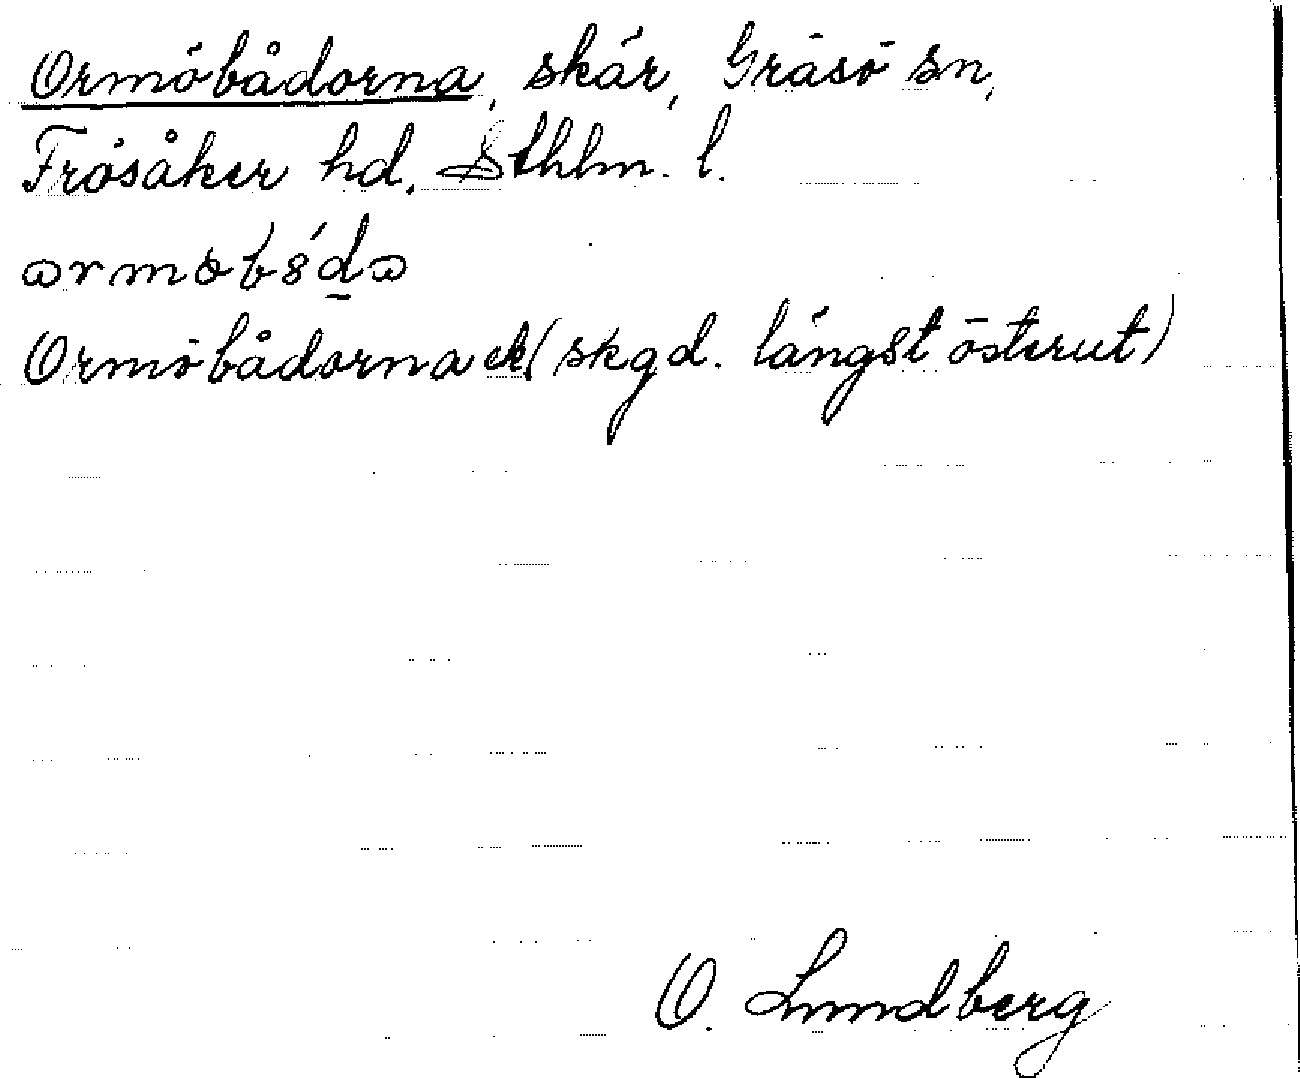 Ormöbådorna, skär, Gräsö sn,
Frösåker hd. Sthlm. l.
Ormöbådorna ek (skgd. längst österut)
O. Lundberg